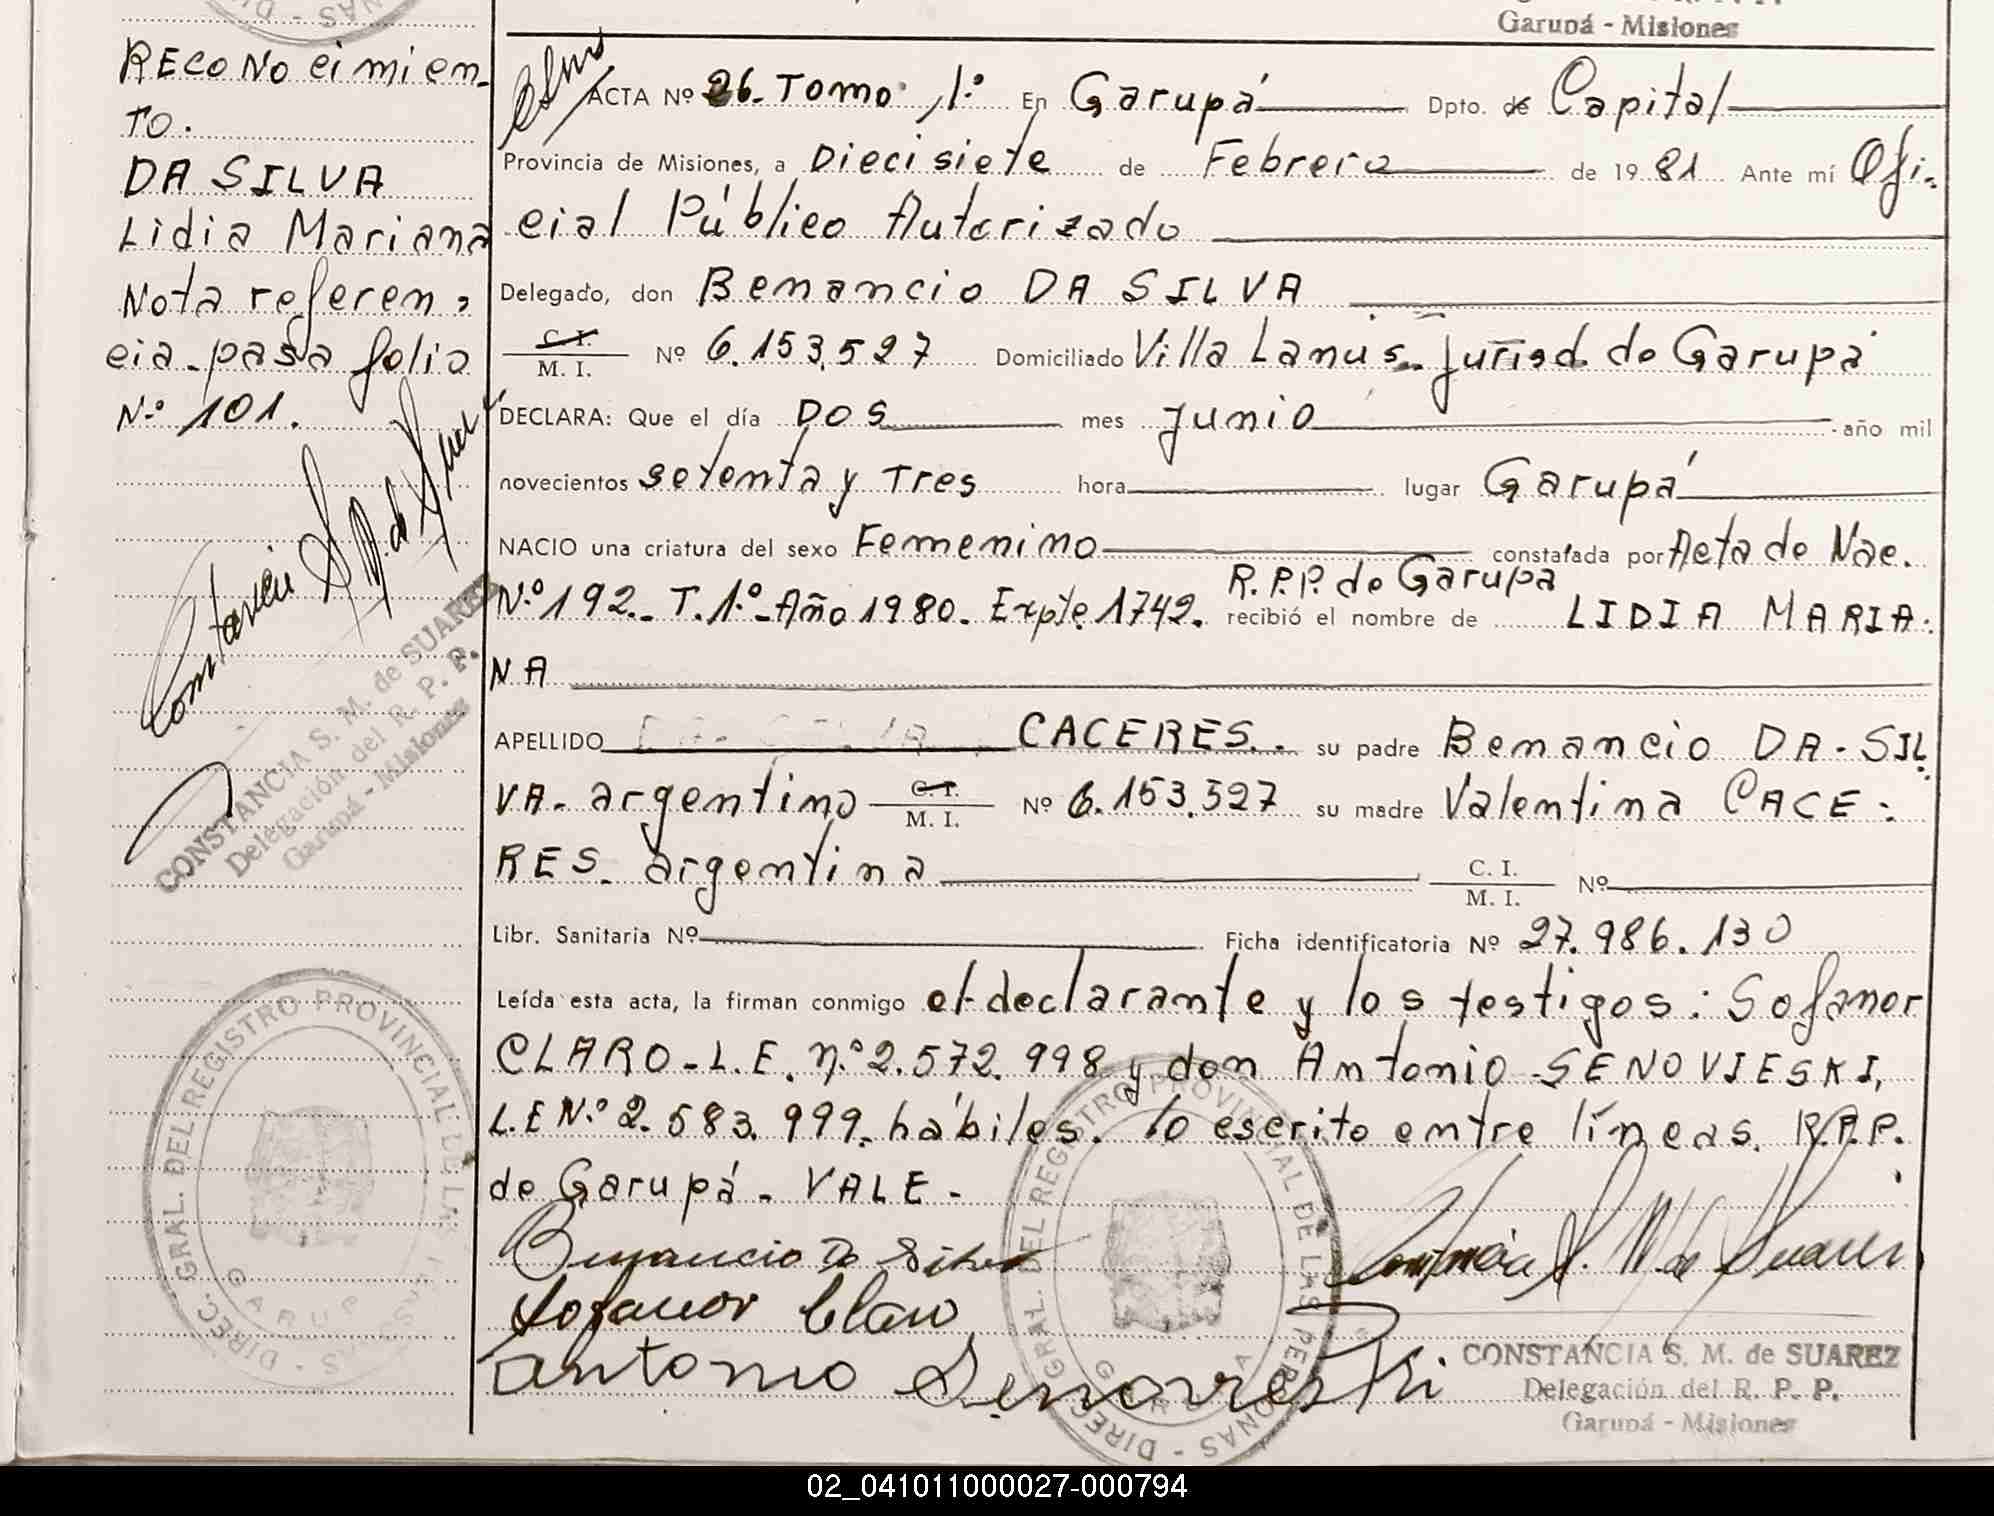 Garupá - Misiones
RECONOcimien-
TO.
DA SILVA
Lidia Mariana
Nota referen,
cia pasa folio
N.º 101.
CONSTANCIA S. M. de SUAREZ
Delegación del R. P. P.
Garupá - Misiones
DIREC. GRAL. DEL REGISTRO PROVINCIAL DE LAS PERSONAS
GARUPA
ACTA Nº 26. Tomo 1.º En Garupá Dpto. de Capital
Provincia de Misiones, a Diecisiete de Febrero de 1981 Ante mí Ofi-
cial Público Autorizado
Delegado, don Benancio DA SILVA
C. I. / M. I. Nº 6.153.527 Domiciliado Villa Lanús Jurisd. de Garupá
DECLARA: Que el día DOS mes Junio año mil
novecientos setenta y Tres hora lugar Garupá
NACIO una criatura del sexo Femenino constatada por Acta de Nac.
R.P.P. de Garupá
N.º 192.- T. 1.º - Año 1980. Expte 1742. recibió el nombre de LIDIA MARIA-
NA
APELLIDO CACERES. su padre Benancio DA-SIL
VA- argentino C. I. / M. I. Nº 6.153.527 su madre Valentina CACE-
RES- argentina C. I. / M. I. Nº
Libr. Sanitaria Nº Ficha identificatoria Nº 27.986.130
Leída esta acta, la firman conmigo el declarante y los testigos: Sofanor
CLARO-L.E. n.º 2.572.998 y don Antonio SENOVIESKI,
L.E N.º 2.583.999. hábiles. lo escrito entre líneas. R.P.P.
de Garupá - VALE -
Benancio Da Silva
Sofanor Claro
Antonio Senovieski
Constancia S. M. de Suarez
CONSTANCIA S. M. de SUAREZ
Delegación del R. P. P.
Garupá - Misiones
DIREC. GRAL. DEL REGISTRO PROVINCIAL DE LAS PERSONAS
GARUPA
02_041011000027-000794